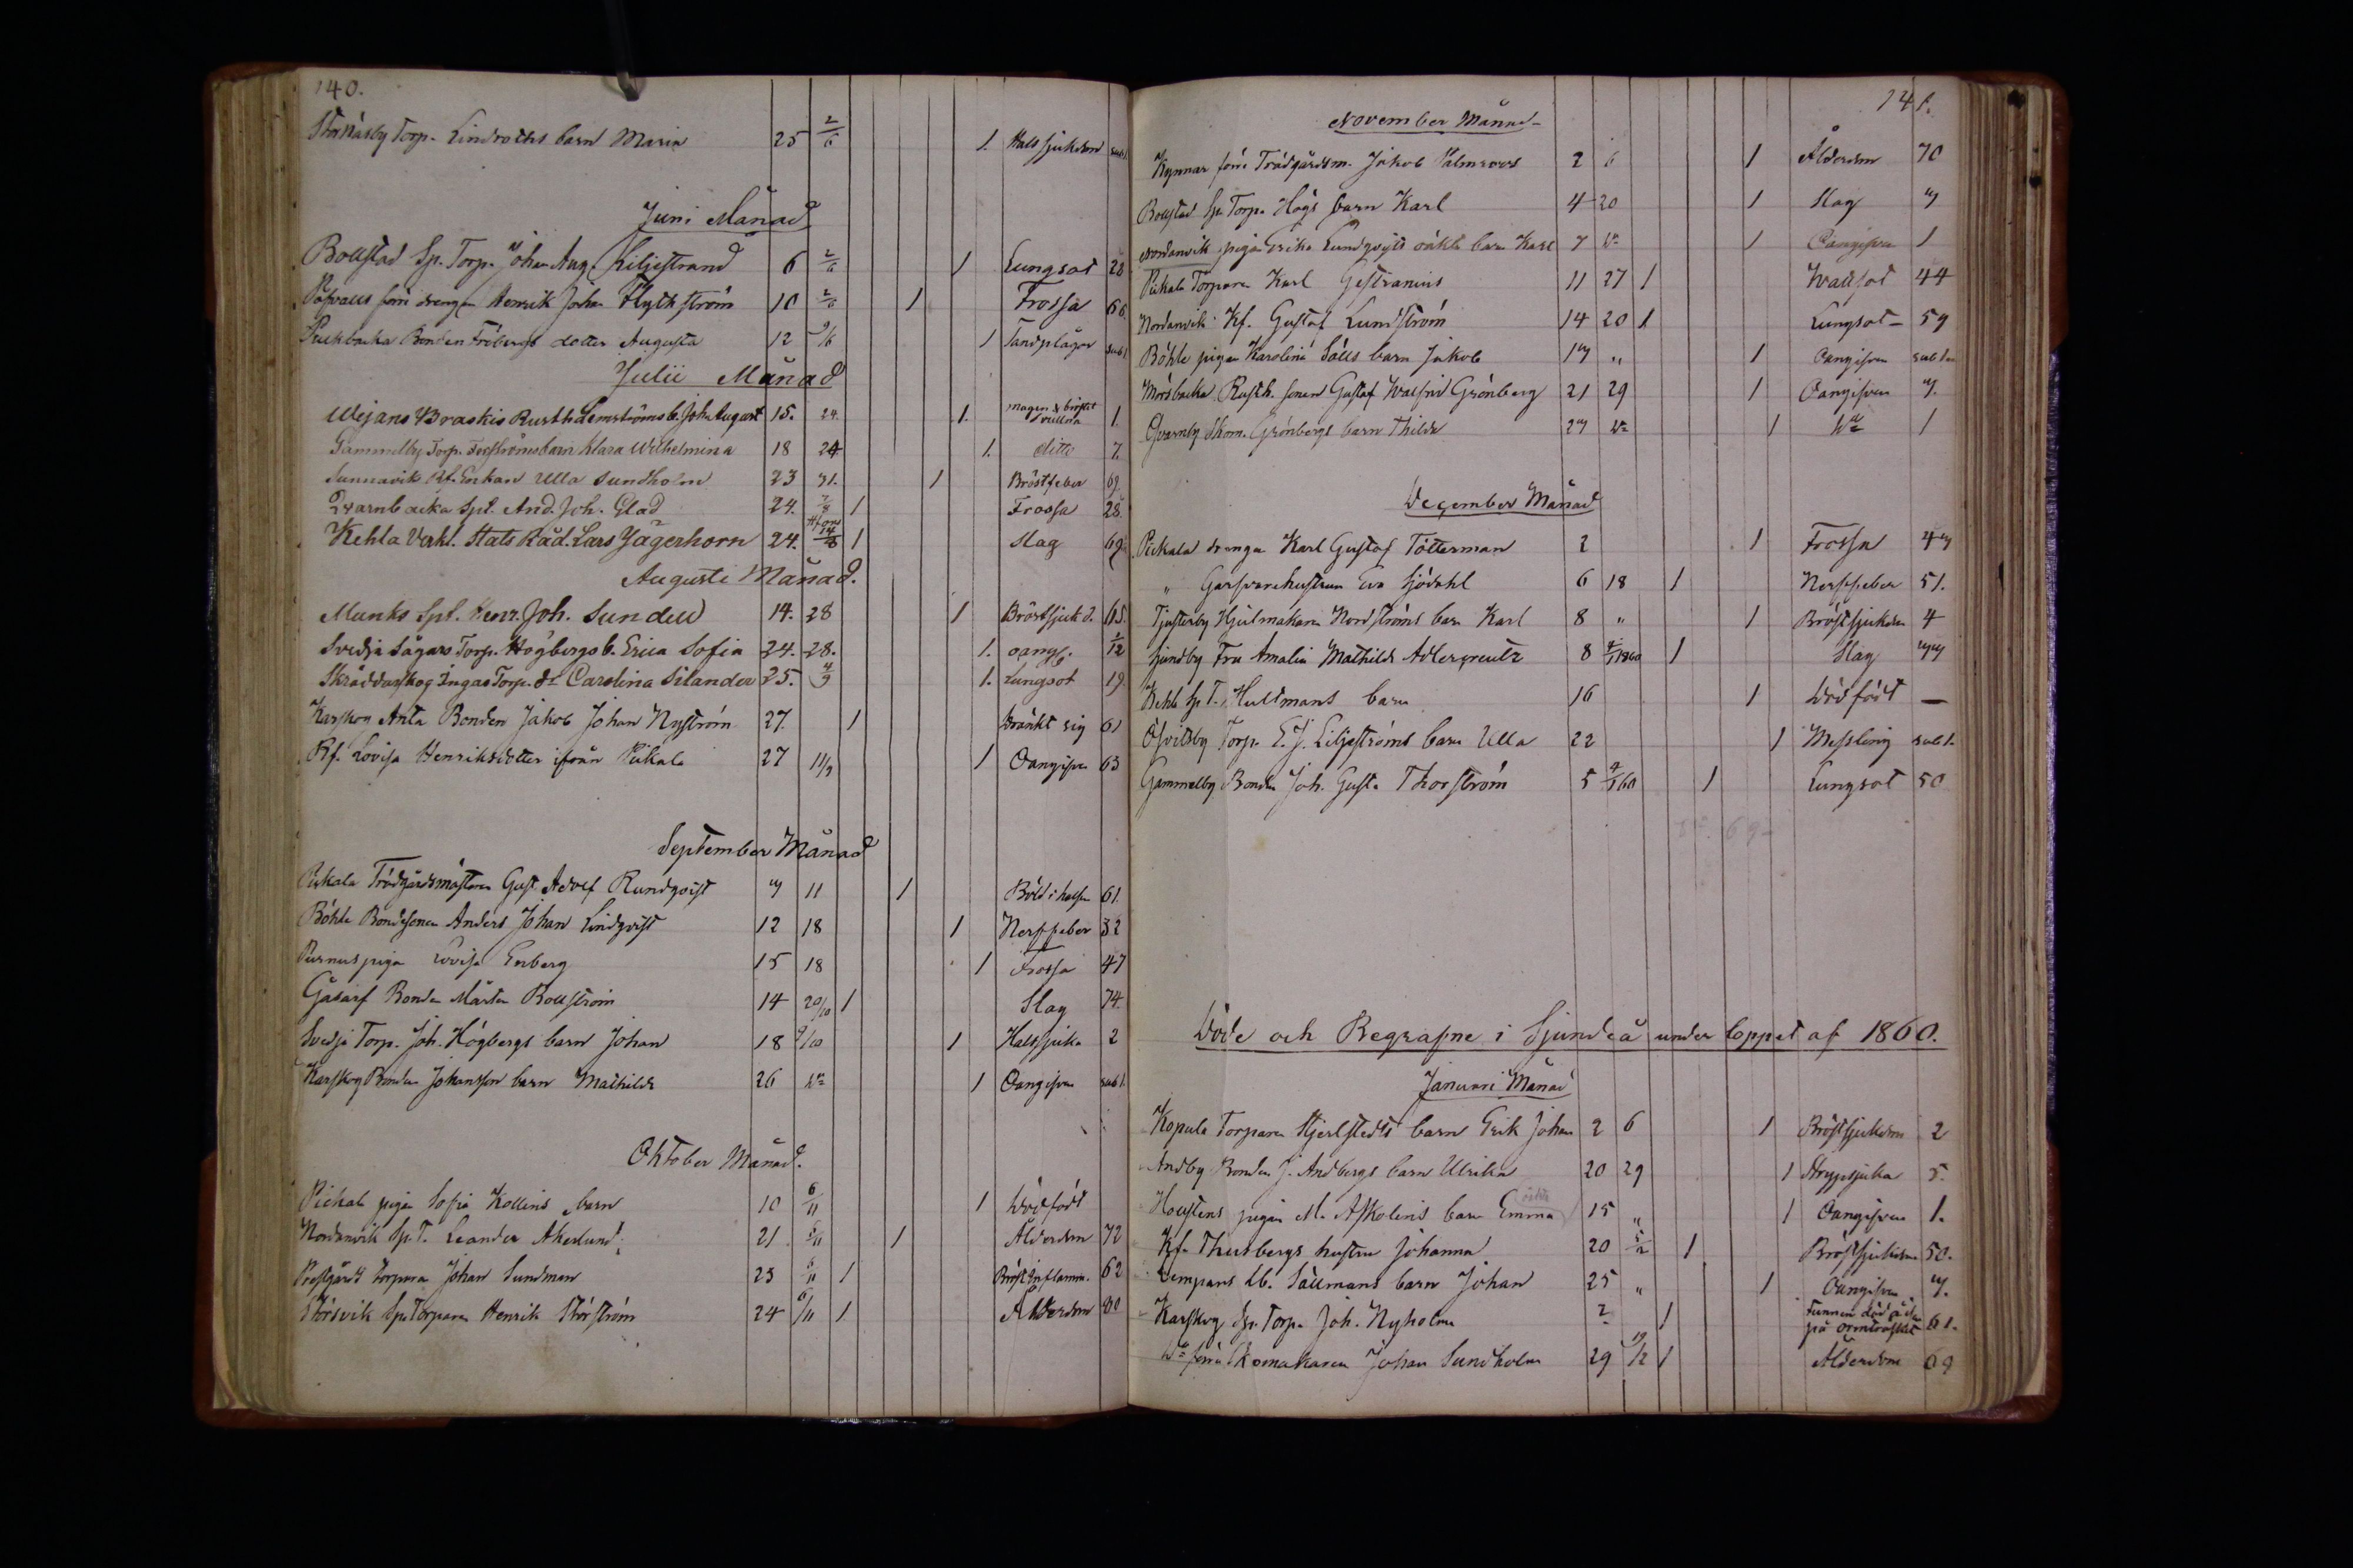 140.
Störsåsby Torp. Lindroths barn Maria 25 2/6 1. Halssjukdom sub1.
Juni Månad
Bollstad Sp. Torp. Johan Aug. Liljestrand 6 2/6 1 Lungsot 28
förre drengen Henrik Johan Flythström 10 2/6 1 Frossa 66
Bonden Fröbergs dotter Augusta 12 9/6 1 Tandplågor sub1
Julii Månad
Wejans Braskis Rusth. Lemströms b. Joh. August 15. 24. 1. 1.
Gammelby Torp. Torströms barn Klara Wilhelmina 18 24 1. ditto 7.
Sunnavik Rf. Enkan Ulla Sundholm 23 31. 1 Bröstfeber 69.
Qvarnbacka Spt. And. Joh. Glad 24. 7/8 1 Frossa 28.
Kehla Verkl. Stats Råd. Lars Jägerhorn 24. 14/8 1 Slag 69.
Augusti Månad.
Munks Spt. Henr. Joh. Sundell 14. 28 1 Bröstsjuk d. 65.
Svedja Sågars Torp. Högbergs b. Erica Sofia 24. 28. 1. oangf. 1/12
Skräddarskog Ingas Torp. dr Carolina Silander 25. 4/9 1. Lungsot 19.
Karskog Anta Bonden Jakob Johan Nyström 27. 1 Dränkt sig 61
Rf. Lovisa Henriksdotter ifrån Pickala 27 11/9 1 Oangifven 63
September Månad
Pickala Trädgårdsmästaren Gust. Adolf Rundqvist 7 11 1 Böld i halsen 61.
Böhle Bondesonen Anders Johan Lindqvist 12 18 1 Nerffeber 32
Purnus piga Lovisa Enberg 15 18 1 Frossa 47
Gåsarf Bonden Mårten Bollström 14 20/10 1 Slag 74.
Svedja Torp. Joh. Högbergs barn Johan 18 9/10 1 Halssjuka 2
Karskog Bonden Johansson barn Mathilda 26 Do 1 Oangifven sub1.
Oktober Månad.
Pickala pigan Sofia Kollins barn 10 6/11 1 Dödfödt
Nordanvik Sp. T. Leander Åkerlund. 21 6/11 1 Ålderdom 72
Prestgårds torparen Johan Sundman 23 6/11 1 Bröst Inflamm. 62
Störsvik Sp. Torparen Henrik Störström 24 6/11 1 Ålderdom 80
141.
November Månad
Kynnar förre Trädgårdsm. Jakob Palmroos 2 6 1 Ålderdom 70
Bollstad Sp. Torp. Högs barn Karl 4 20 1 Slag 7
Nordanvik pigan Erika Lundqvists oäkta barn Karl 7 Do 1 Oangifven 1
Pickala Torparen Karl Gestranius 11 27 1 Wattsot 44
Nordanvik Rf. Gustaf Lundström 14 20 1 Lungsot 59
Böhle pigan Karolina Sälls barn Jakob 17 „ 1 Oangifven sub 1m
Mörsbacka Rusth. sonen Gustaf Walfrid Grönberg 21 29 1 Oangifven 7.
Qvarnby Skom. Grönbergs barn Thilda 27 Do 1 Do 1
December Månad
Pickala drengen Karl Gustaf Tötterman 2 1 Frossa 47
„ Garfvarehustrun Eva Sjödahl 6 18 1 Nerffeber 51.
Tjusterby Hjulmakaren Nordströms barn Karl 8 „ 1 Bröstsjukdom 4
Sjundby Fru Amalia Mathilda Adlercreutz 8 4/1 1860 1 Slag 77
Kehla Sp. T. Hultmans barn 16 1 Dödfödt —
Ösvitsby Torp. E. J. Liljeströms barn Ulla 22 1 Messling sub 1.
Gammelby Bonden Joh. Gust. Thorström 5 4/1 60 1 Lungsot 50
Döde och Begrafne i Sjundeå under loppet af 1860.
Januari Månad
Kopula Torparen Hjerlstedts barn Erik Johan 2 6 1 Bröstsjukdom 2
Andby Bonden J. Andbergs barn Ulrika 20 29 1 Strypsjuka 5.
Houstens pigan M. Askolins barn Emma 15 „ 1 Oangifven 1.
Rf. Thusbergs hustru Johanna 20 5/2 1 Bröstsjukdom 50.
Lempans Sällmans barn Johan 25 „ 1 Oangifven 7.
Karskog Sp. Torp. Joh. Nyholm ? 1 Funnen död å isen
på ormträsket 61.
Do förre Skomakaren Johan Sundholm 29 19/2 1 Ålderdom 69